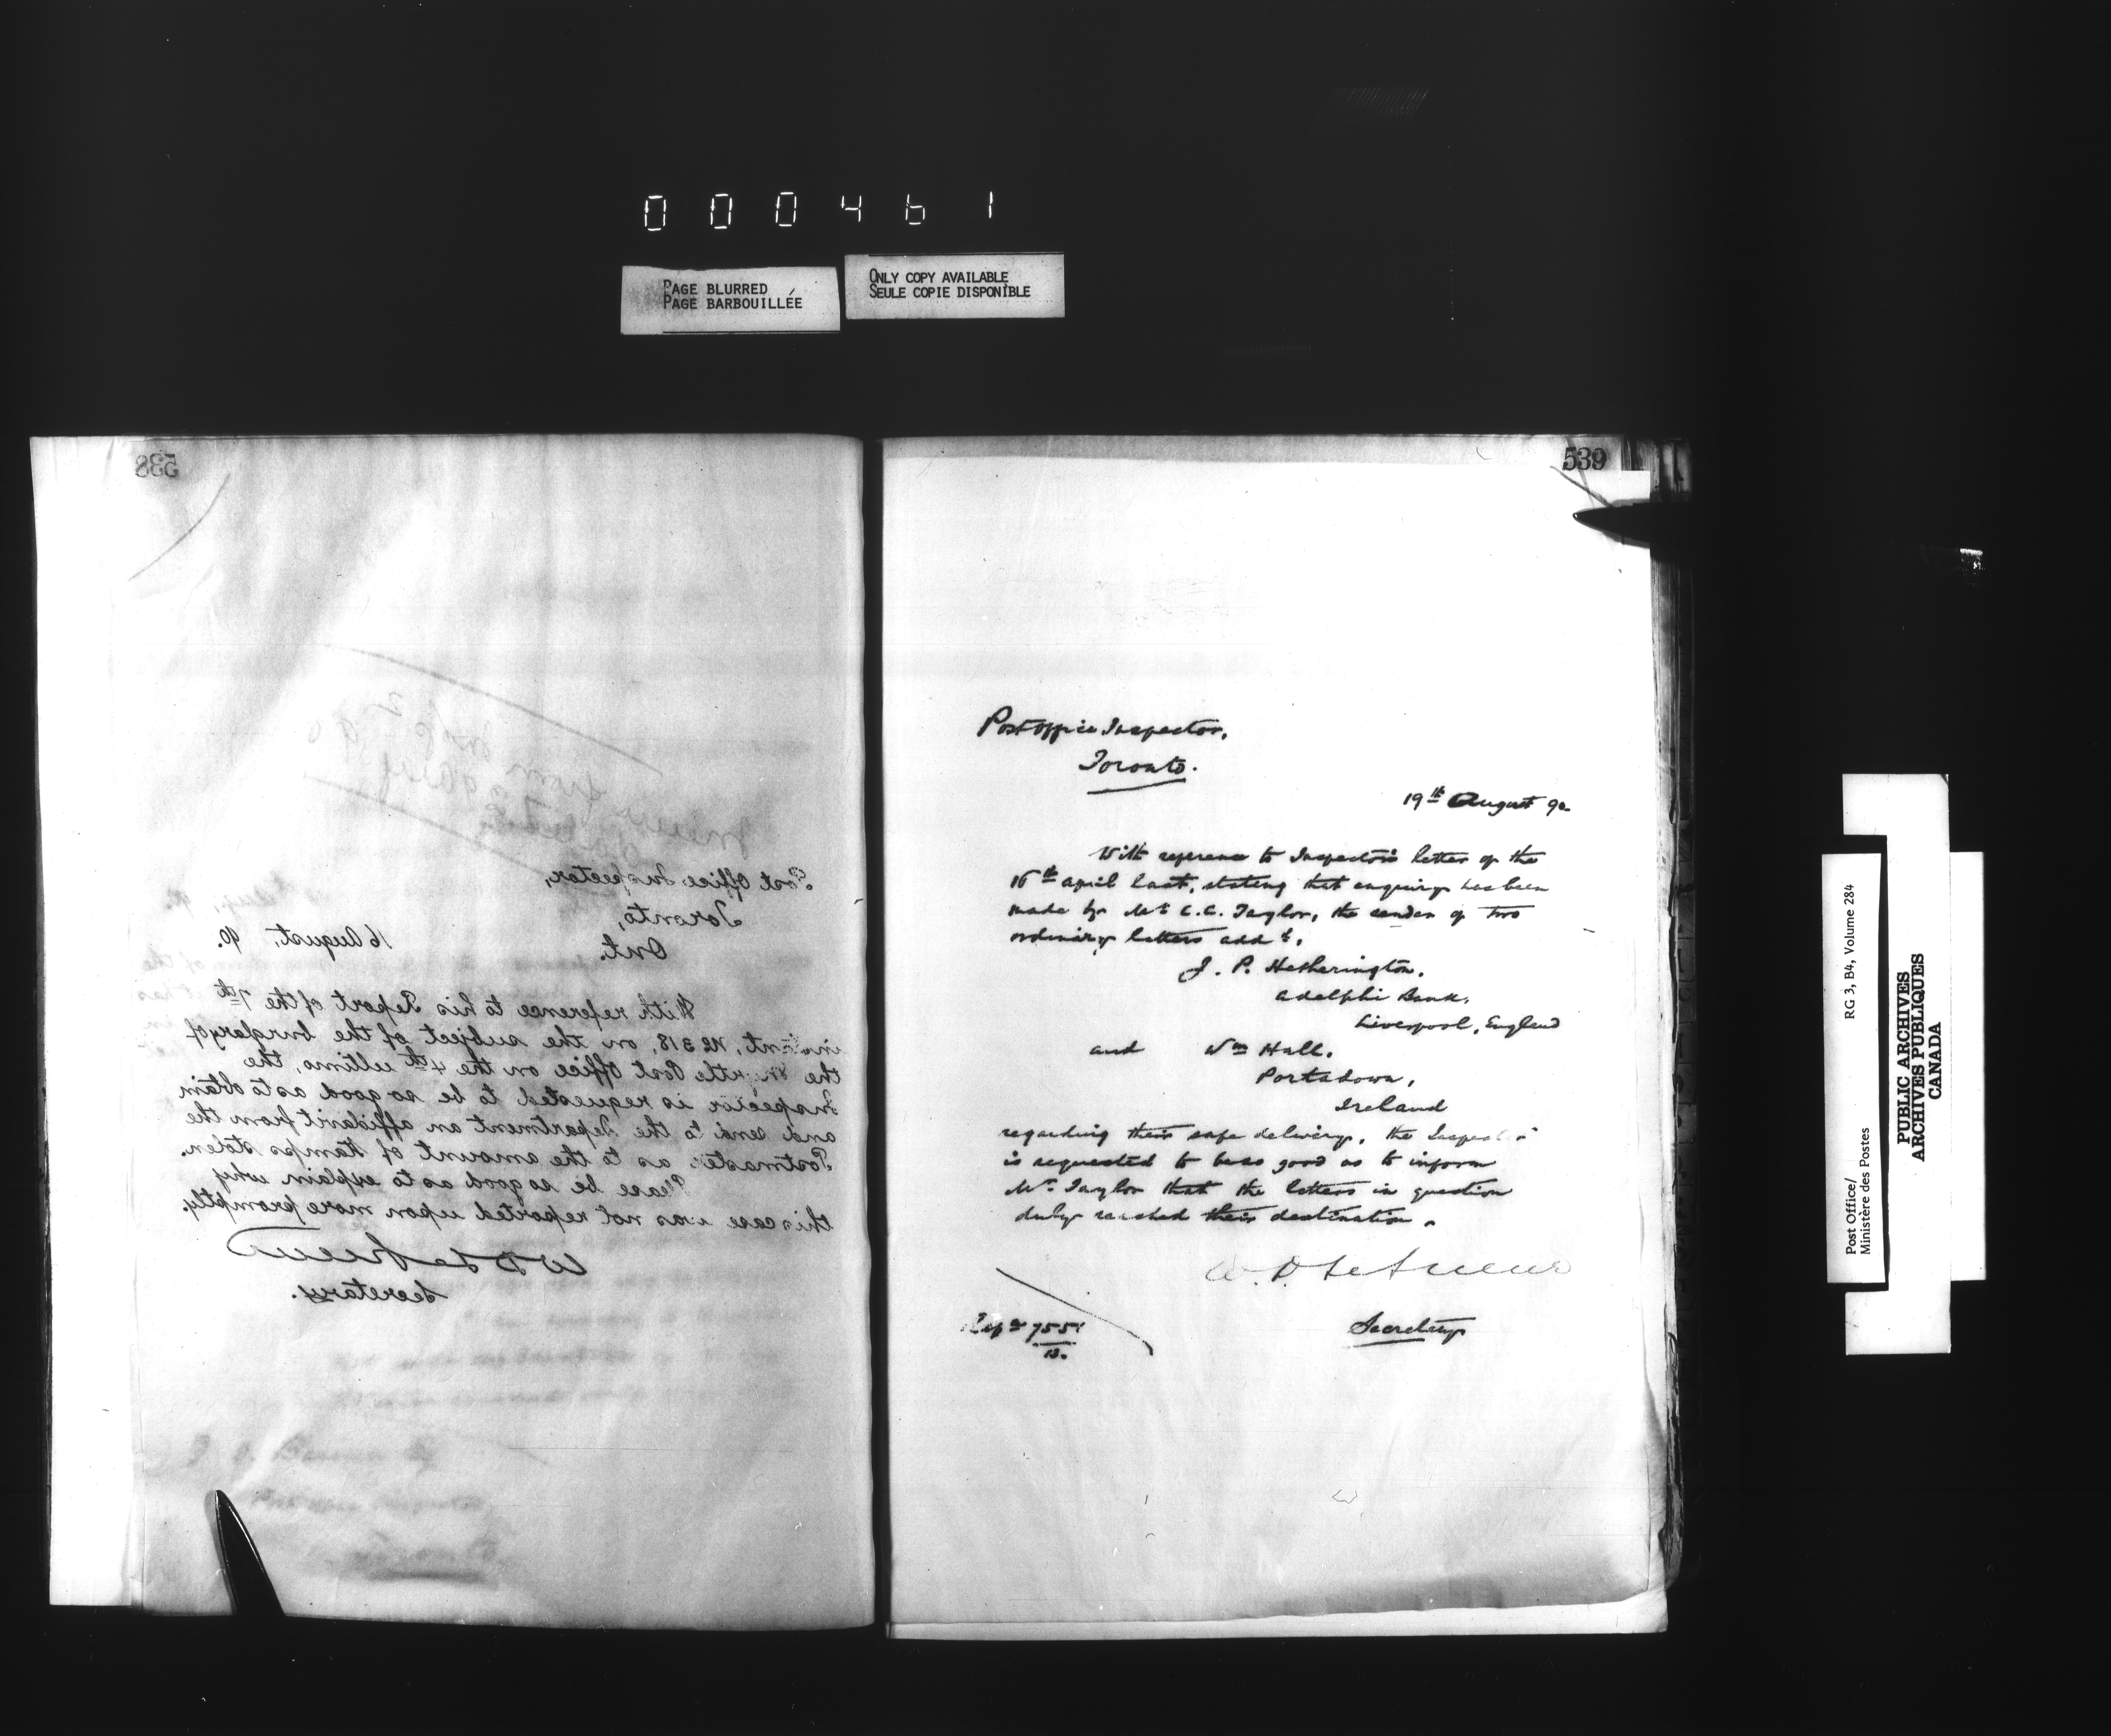 000461
PAGE BLURRED
PAGE BARBOUILLÉE
ONLY COPY AVAILABLE
SEULE COPIE DISPONIBLE
538
Post Office Inspector,
Toronto,
Ont.
16 August, 90.
With reference to his Report of the 7th
instant, No 318, on the subject of the burglary of
the Myrtle Post Office on the 4th ultimo, the
Inspector is requested to be so good as to obtain
and send to the Department an affidavit from the
Postmaster as to the amount of stamps stolen.
Please be so good as to explain why
this case was not reported upon more promptly.
W D LeSueur
Secretary.
539
Post Office Inspector,
Toronto.
19th August 90
With reference to Inspector's letter of the
16th April last, stating that enquiry has been
made by Mr C.C. Taylor, the sender of two
ordinary letters addd,
J. P. Hetherington,
Adelphi Bank,
Liverpool, England
and Wm Hall,
Portadown,
Ireland
regarding their safe delivery, the Inspector
is requested to be so good as to inform
Mr Taylor that the letters in question
duly reached their destination.
W. D. LeSueur
Secretary
Post Office/
Ministère des Postes
RG 3, B4, Volume 284
PUBLIC ARCHIVES
ARCHIVES PUBLIQUES
CANADA